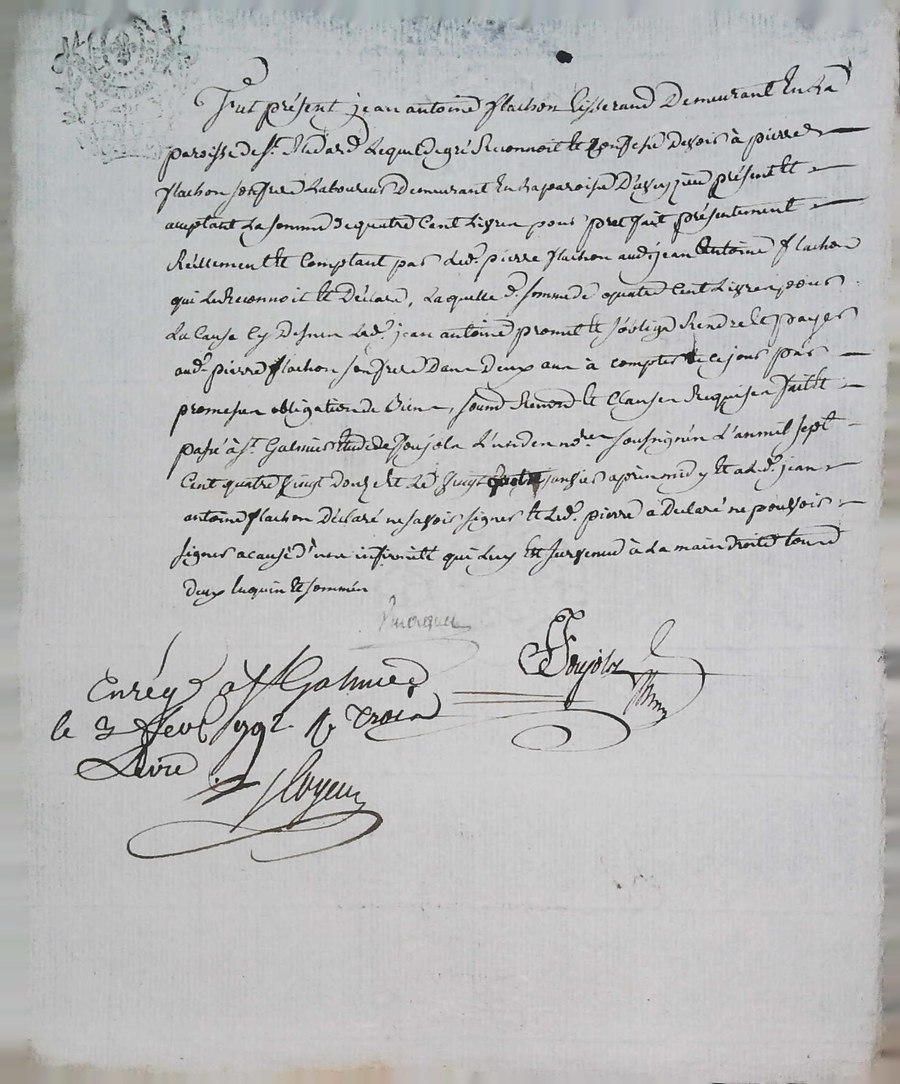 Fut présent jean antoine flachon tisserand Demeurant En La
paroisse de st. Medard Lequel de gré Reconnoit et Confesse Devoir à pierre
flachon son frere Laboureur Demeurant En La paroisse D'aveyzieu présent et
acceptant La somme de quatre Cent Livres pour pret fait présentement
Réellement et Comptant par Led. pierre flachon aud. jean antoine flachon
qui Le Reconnoit et Déclare, Laquelle d. somme de quatre Cent Livres pour
La Cause Cy Dessus Led. jean antoine promet et s'oblige Rendre et payer
aud. pierre flachon son frere Dans Deux ans à compter de ce jour par
promesses obligation de Biens, soumn Renonn et Clauses Requises fait et
passé à st. Galmier Etude de Soujols L'un des nores soussignés L'an mil sept
Cent quatre Vingt Douze et Le Vingt janvier après midy et a Led. jean
antoine flachon Déclaré ne savoir signer et Led. pierre a Declaré ne pouvoir
signer a cause d'une infirmité qui Luy est survenue à La main droite tous
deux Enquis et sommés
Soujols
Enrég. a st Galmier
le 3 fevr 792. R trois
Livre